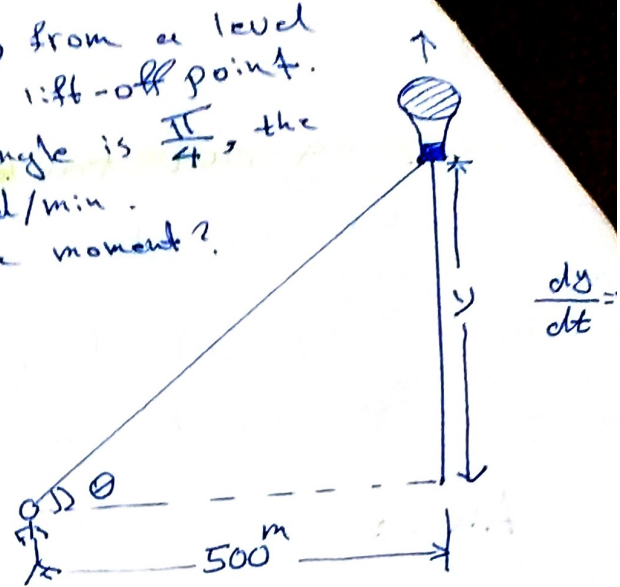 from a level
lift-off point.
is π/4, the
/min.
moment?
y
dy/dt =
θ
500 m